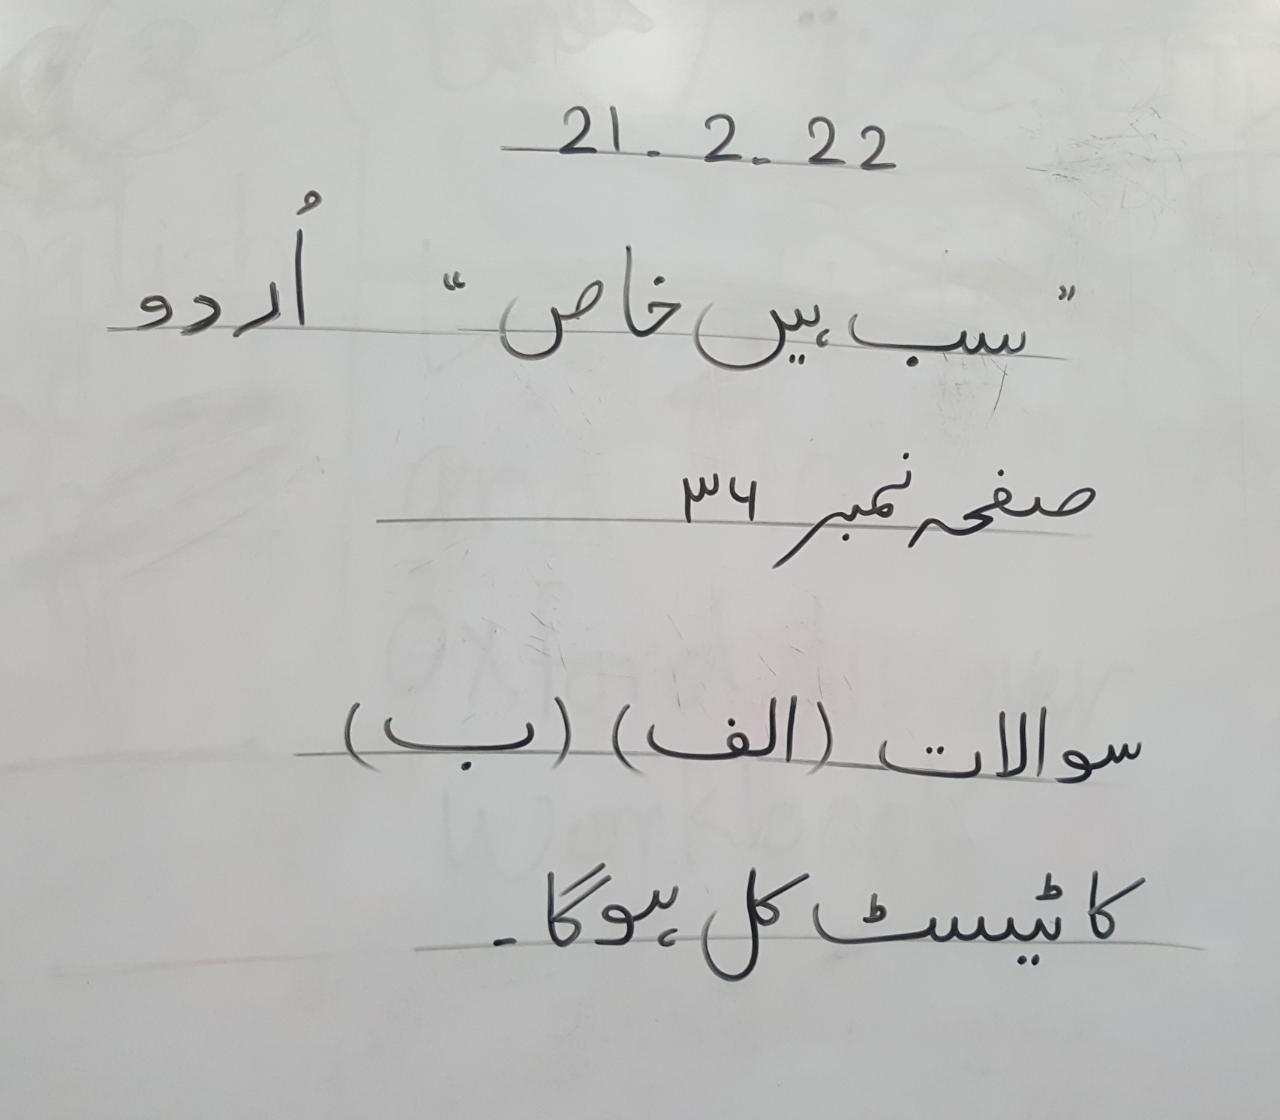 21.2.22
"سب ہیں خاص" اُردو
صفحہ نمبر ۳۶
سوالات (الف) (ب)
کا ٹیسٹ کل ہوگا۔